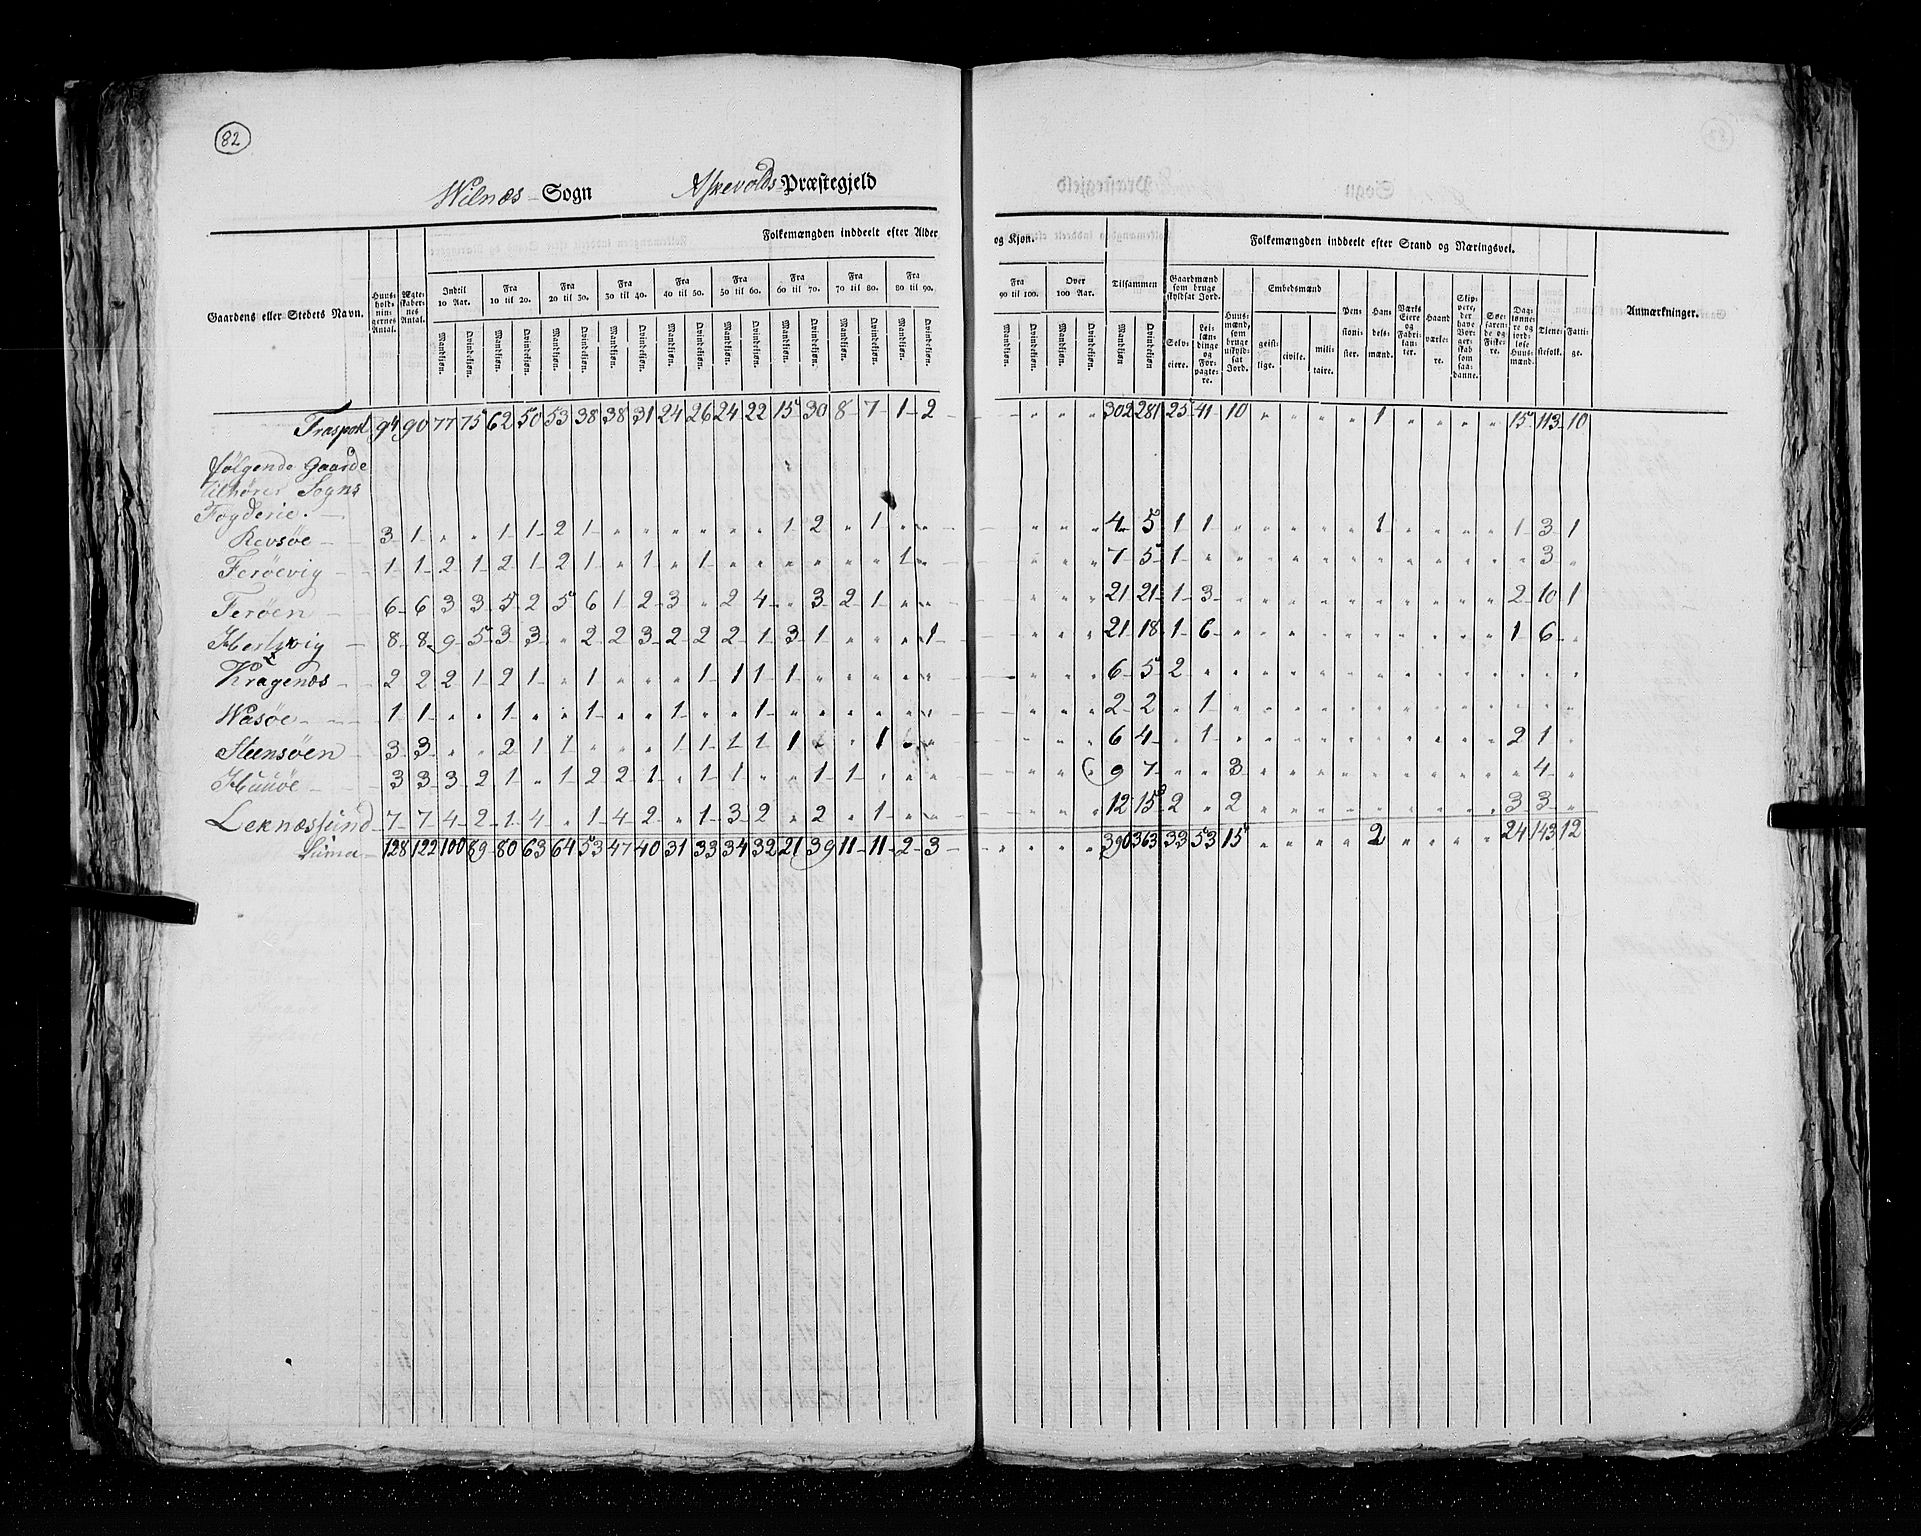 82
Wilnæs Sogn Askevolds Præstegjeld
Folkemængden inddeelt efter Alder og Kjøn. Folkemængden inddeelt efter Stand og Næringsvei.
Gaardens eller Stedets Navn. Huus-holdningernes Antal. Ægteskabernes Antal. Indtil 10 Aar. Fra 10 til 20. Fra 20 til 30. Fra 30 til 40. Fra 40 til 50. Fra 50 til 60. Fra 60 til 70. Fra 70 til 80. Fra 80 til 90. Fra 90 til 100. Over 100 Aar. Tilsammen Gaardmænd som bruge skyldsat Jord. Huusmænd, som bruge uskyldsat Jord. Embedsmænd Pensionister. Handelsmænd. Værks Eiere og Fabrikanter. Haandværkere. Skippere, der have Borgerskab som saadanne. Søefarende og Fiskere. Daglønnere og jordløse Huusmænd. Tienestefolk. Fattige. Anmærkninger.
Mandkjøn. Qvindekjøn. Mandkjøn. Qvindekjøn. Mandkjøn. Qvindekjøn. Mandkjøn. Qvindekjøn. Mandkjøn. Qvindekjøn. Mandkjøn. Qvindekjøn. Mandkjøn. Qvindekjøn. Mandkjøn. Qvindekjøn. Mandkjøn. Qvindekjøn. Mandkjøn. Qvindekjøn. Mandkjøn. Qvindekjøn. Mandkjøn Qvindekjøn Selveiere. Leilændinge og Forpagtere. geistlige. civile. militaire.
Trasport 94 90 77 75 62 50 53 38 38 31 24 26 24 22 15 30 8 7 1 2 " " " " 302 281 25 41 10 " " " " 1 " " " " 15 113 10
følgende Gaarde
tilhører Sogns
Fogderie.
Revsøe 3 1 " " 1 1 2 1 " " " " " " 1 2 " 1 " " " " " 4 5 1 1 " " " " " 1 " " " " 1 3 1
Ferøevig 1 1 2 1 2 1 2 1 " 1 " 1 " " " " " " 1 " " " " 7 5 1 " " " " " " " " " " " " 3 "
Ferøen 6 6 3 3 5 2 5 6 1 2 3 " 2 4 " 3 2 1 " " " " " 21 21 1 3 " " " " " " " " " " 2 10 1
Herlevig 8 8 9 5 3 3 " 2 2 3 2 2 2 1 3 1 " " " 1 " " " 21 18 1 6 " " " " " " " " " " 1 6 "
Kragenæs 2 2 2 1 2 1 " 1 " " " 1 1 1 1 " " " " " " " " 6 5 2 " " " " " " " " " " " " " "
Wasøe 1 1 " " 1 " " 1 " " 1 " " 1 " " " " " " " " " 2 2 " 1 " " " " " " " " " " " " "
Steensøen 3 3 " " 2 1 1 " " " 1 1 1 1 1 " " 1 " " " " " 6 4 " 1 " " " " " " " " " " 2 1 "
Huuøe 3 3 3 2 1 " 1 2 2 1 " 1 1 " " 1 1 " " " " " 9 7 " " 3 " " " " " " " " " " " 4 "
Leknæssund 7 7 4 2 1 4 " 1 4 2 " 1 3 2 " 2 " 1 " " " " " 12 15 2 " 2 " " " " " " " " " 3 3 "
Suma 128 122 100 89 80 63 64 53 47 40 31 33 34 32 21 39 11 11 2 3 " " " " 390 363 33 53 15 " " " " 2 " " " " 24 143 12